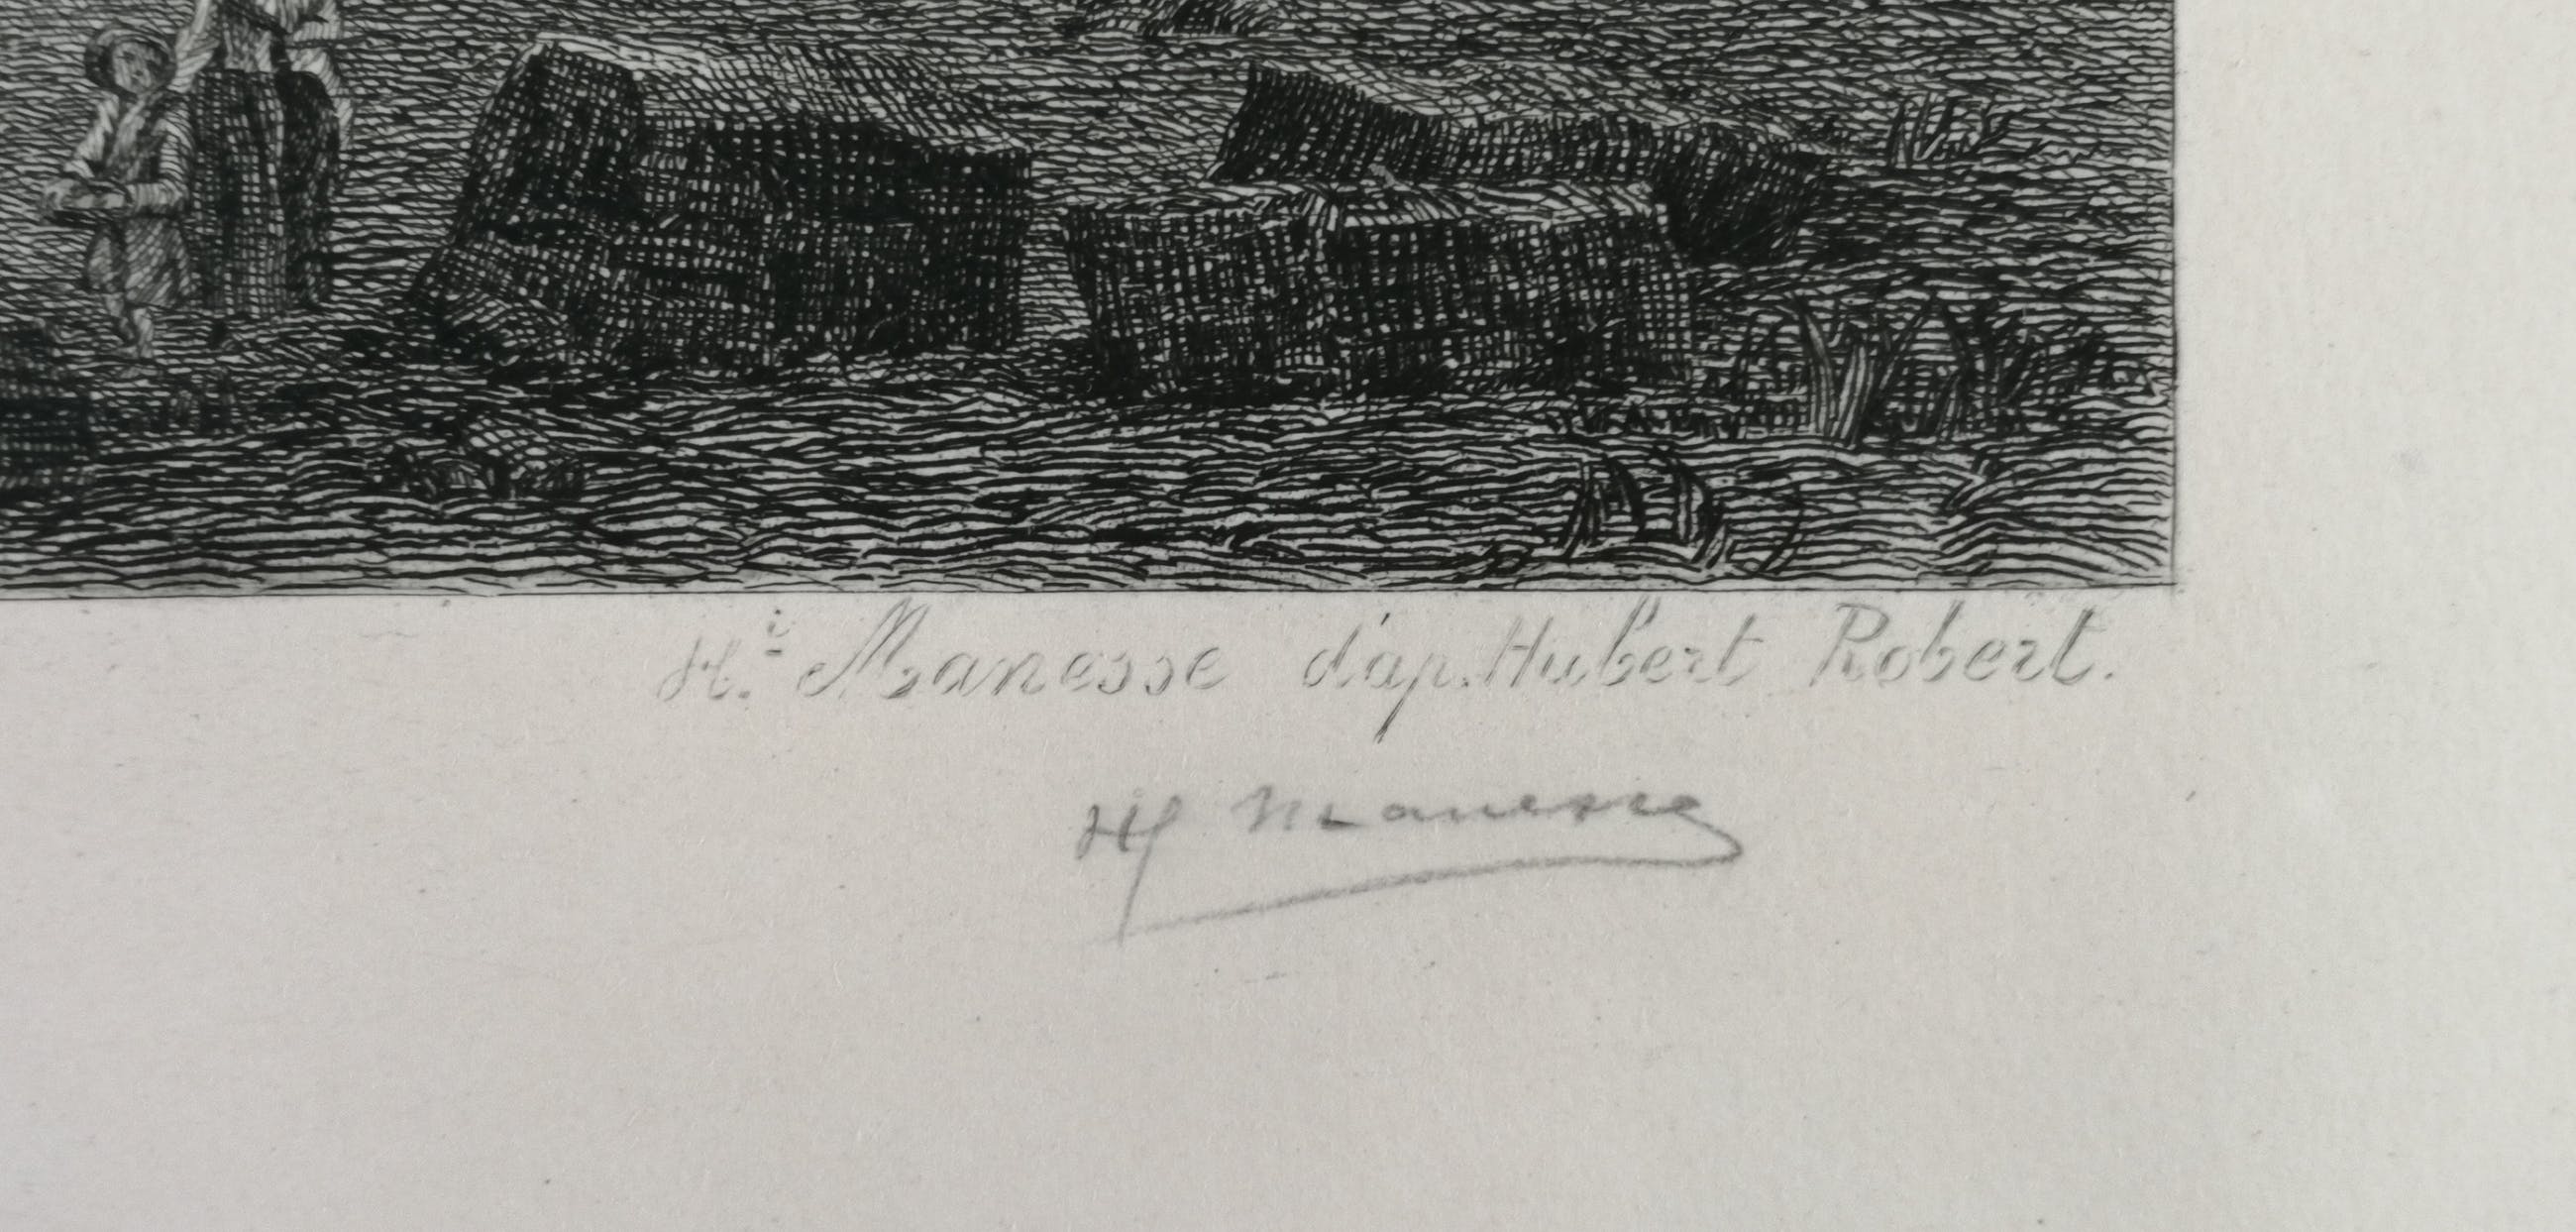 H.i Manesse d'ap. Hubert Robert.
Hi Manesse